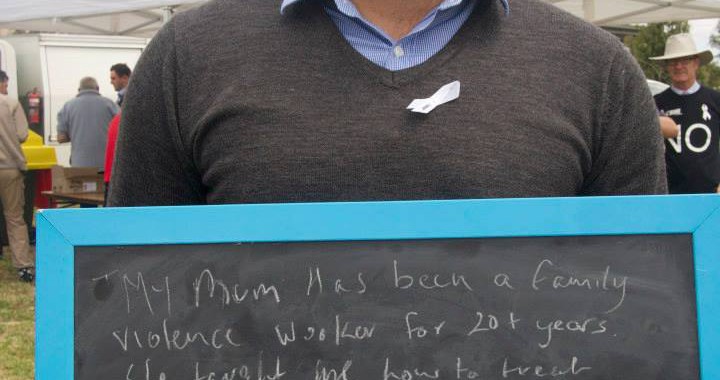 NO
"My Mum Has been a family
violence worker for 20+ years.
She taught me how to treat